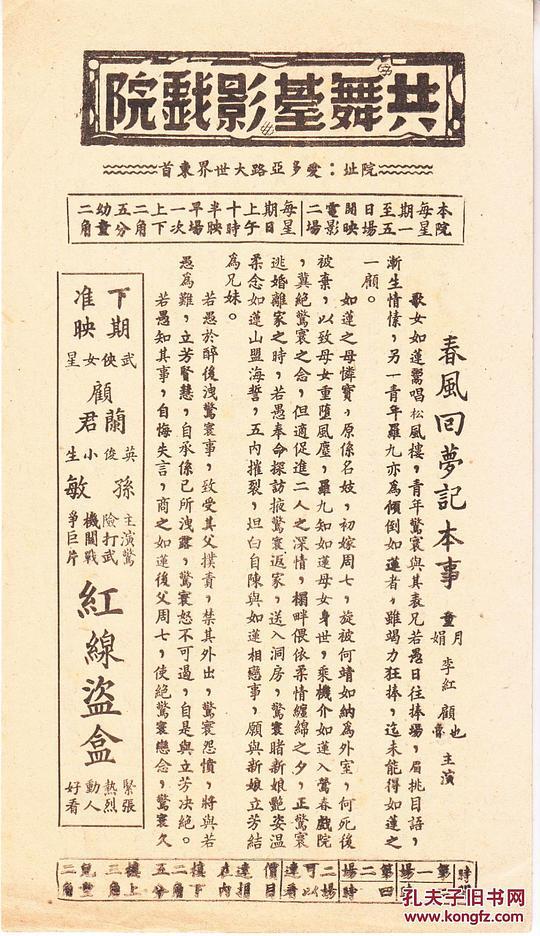 共舞臺影戲院
院址：愛多亞路大世界東首
本院每星期一至五日場開映電影二場
每星期日上午十時半映早場一次上下二角五分幼童二角
春風回夢記本事
童月娟 李紅 顧也魯 主演
歌女如蓮鬻唱松風樓，青年驚寰與其表兄若愚日往捧場，眉挑目語，
漸生情愫，另一青年羅九亦為傾倒如蓮者，雖竭力狂捧，迄未能得如蓮之
一顧。
如蓮之母憐寶，原係名妓，初嫁周七，旋被何靖如納為外室，何死後
被棄，以致母女重墮風塵，羅九知如蓮母女身世，乘機介如蓮入鶯春戲院
，冀絕驚寰之念，但適促進二人之深情，榻畔偎依柔情纏綿之夕，正驚寰
逃婚離家之時，若愚奉命探訪掖驚寰返家，送入洞房，驚寰睹新娘艷姿溫
柔念如蓮山盟海誓，五內摧裂，坦白自陳與如蓮相戀事，願與新娘立芳結
為兄妹。
若愚於醉後洩驚寰事，致受其父撲責，禁其外出，驚寰怨憤，將與若
愚為難，立芳賢慧，自承係已所洩露，驚寰怒不可遏，自是與立芳决絕。
若愚知其事，自悔失言，商之如蓮後父周七，使絕驚寰戀念，驚寰久
下期准映
武俠女星
顧蘭君
英俊小生
孫敏
主演驚險打武機關戰爭巨片
紅線盜盒
緊張熱烈動人好看
價目 樓下二角五分 樓上三角 兒童二角
孔夫子旧书网
www.kongfz.com